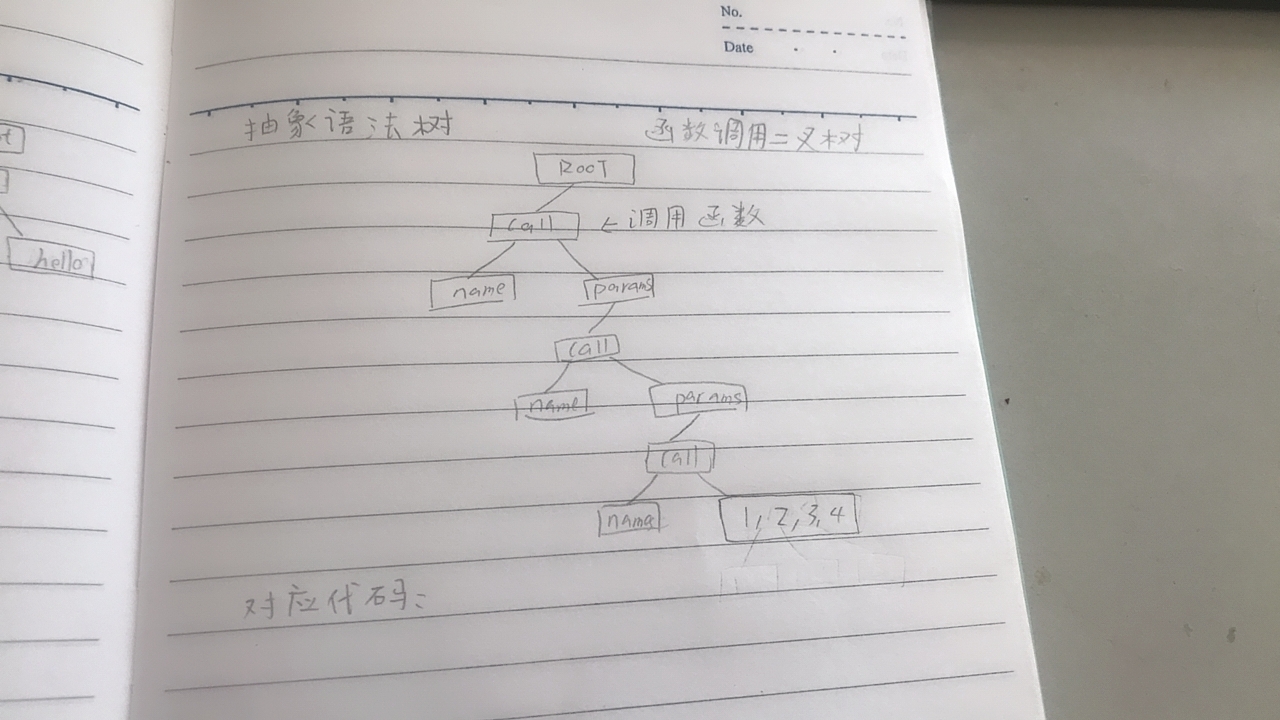 No.
Date
抽象语法树 函数调用二叉树
ROOT
Call ← 调用函数
name params
hello
Call
name params
Call
name 1, 2, 3, 4
对应代码: